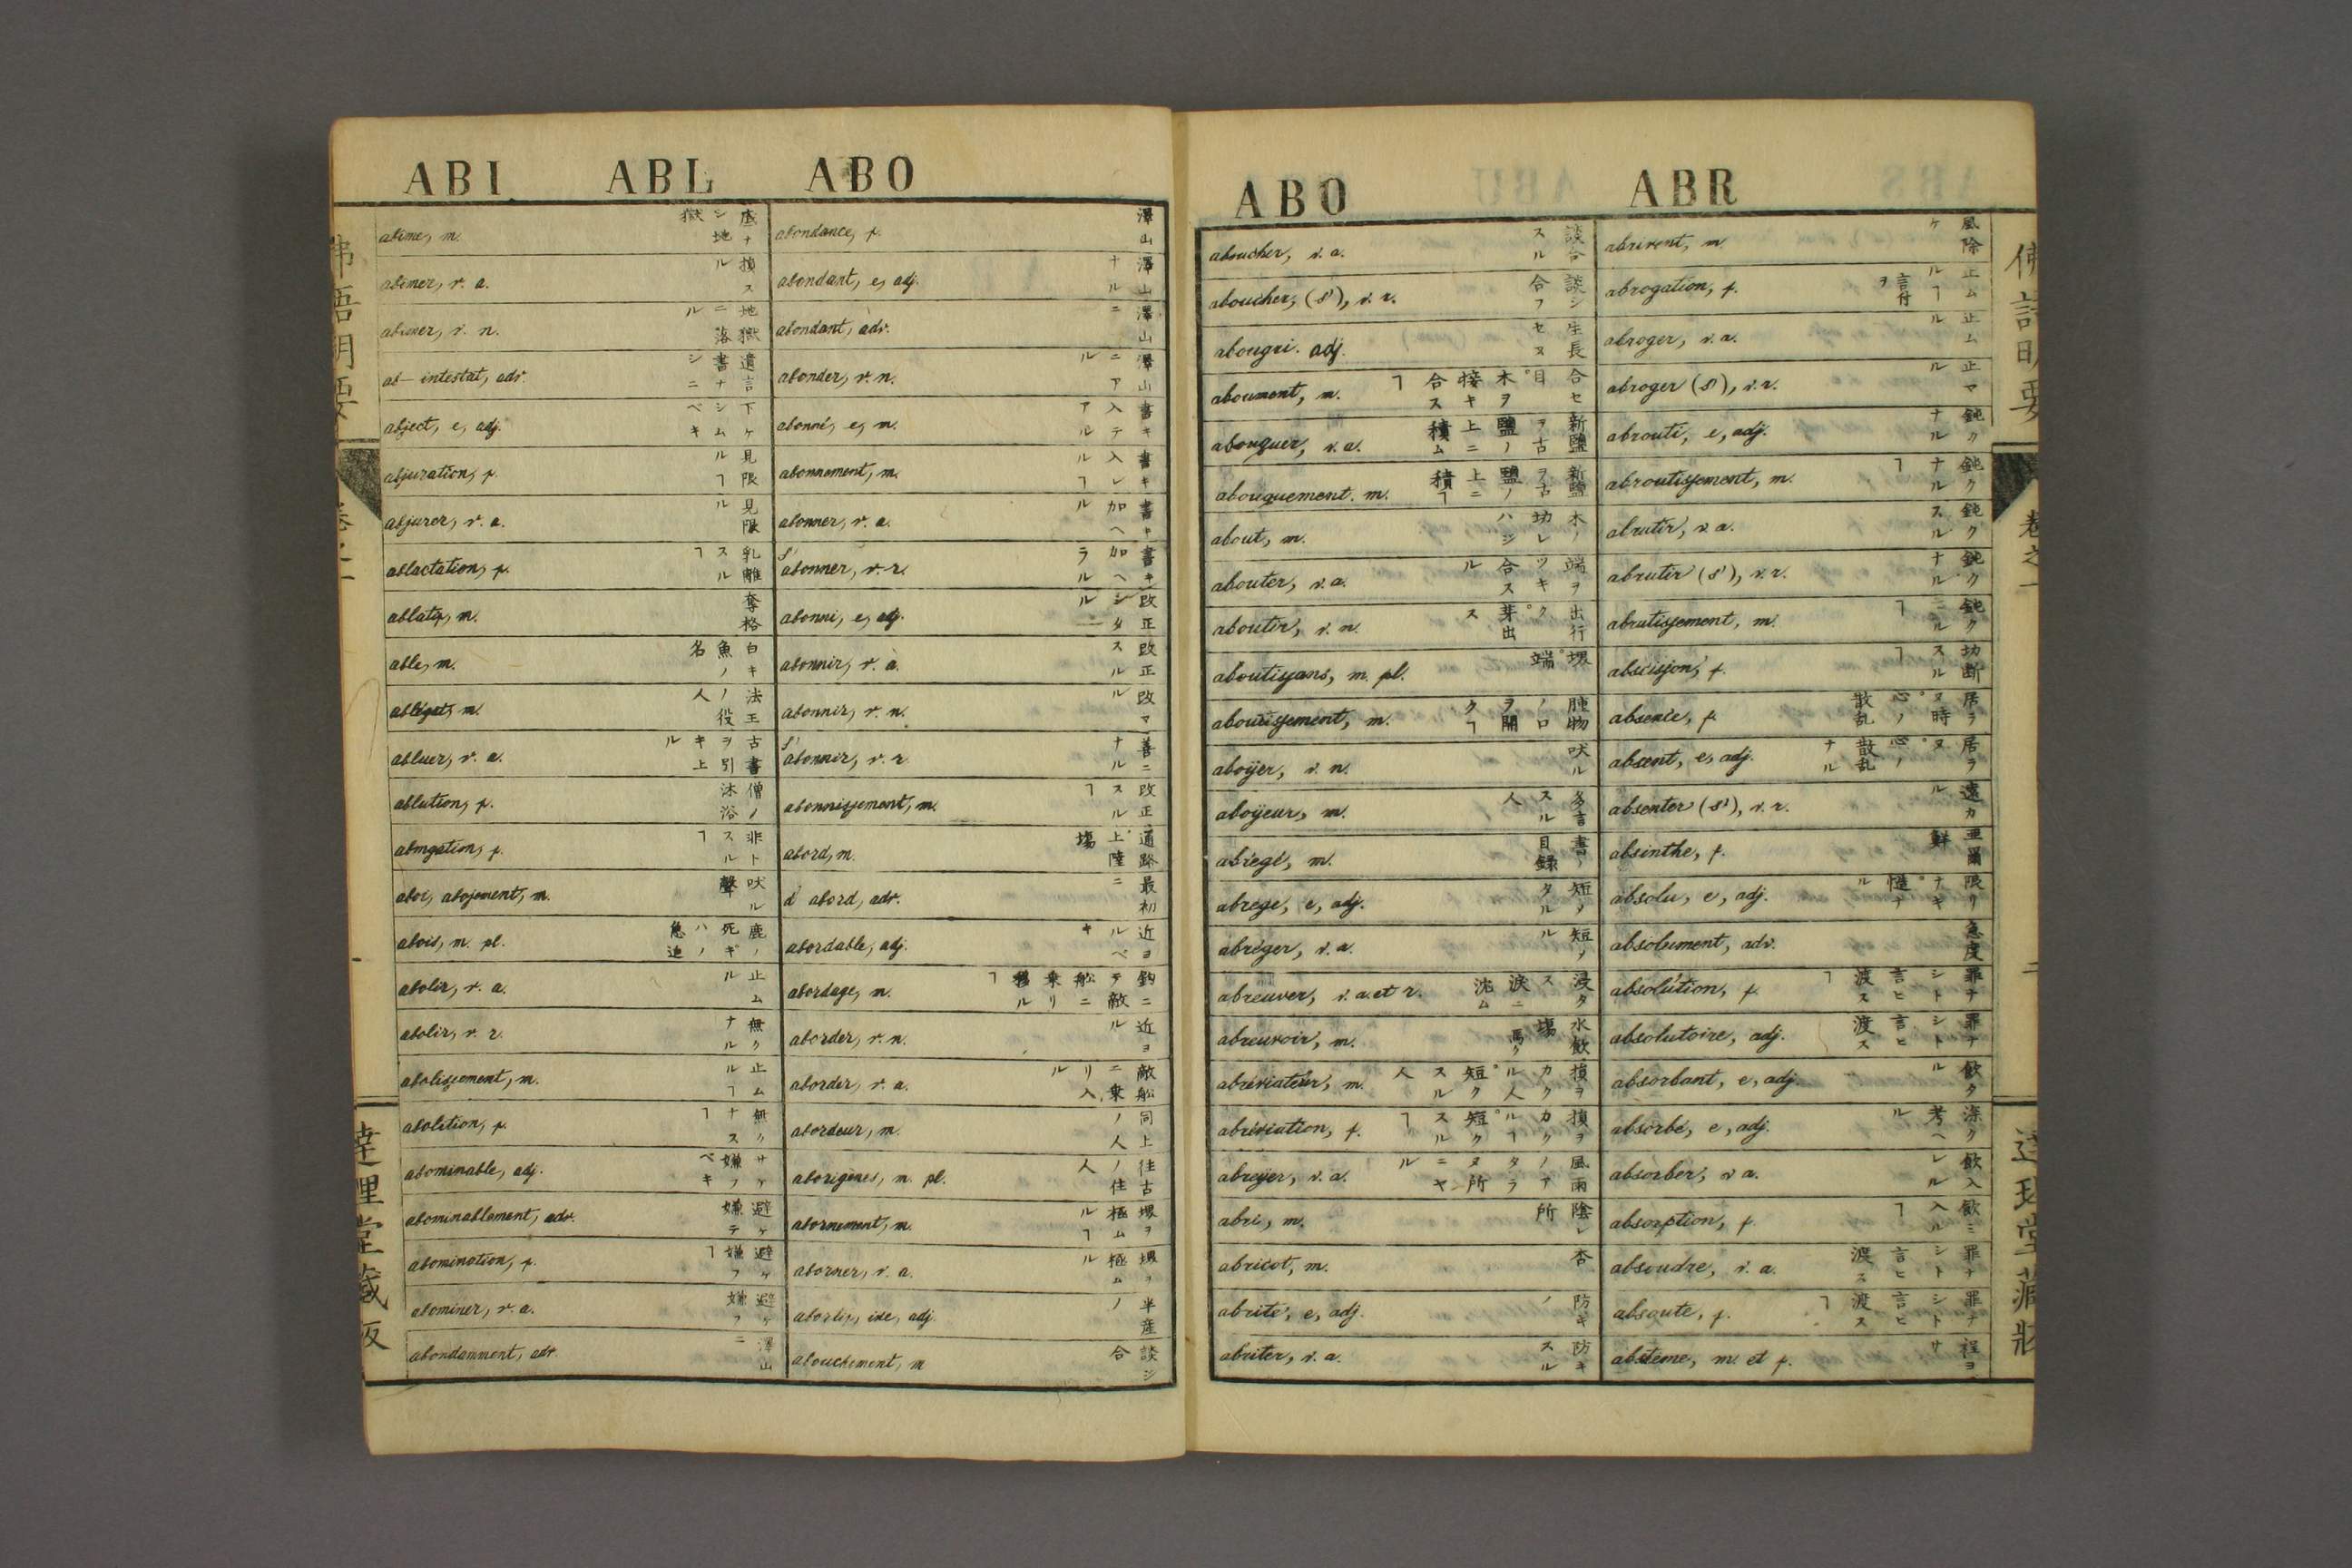 ABI ABL ABO
abime, m. 底ナシ地獄
abimer, v. a. 損スル
abimer, v. n. 地獄ニ落ル
ab-intestat, adv. 遺言書ナシニ
abject, e, adj. 下ケシムベキ
abjuration, f. 見限ルヿ
abjurer, v. a. 見限ル
ablactation, f. 乳離スルヿ
ablatif, m. 奪格
able, m. 白キ魚ノ名
ablégat, m. 法王ノ役人
abluer, v. a. 古書ヲ引キ上ル
ablution, f. 僧ノ沐浴
abnégation, f. 非トスルヿ
aboi, abojement, m. 吠ル聲
abois, m. pl. 鹿ノ死ギハノ急迫
abolir, v. a. 止ムル
abolir, v. r. 無クナル
abolissement, m. 止ムルヿ
abolition, f. 無クナスヿ
abominable, adj. サケ嫌フベキ
abominablement, adv. 避ケ嫌テ
abomination, f. 避ケ嫌フヿ
abominer, v. a. 避ケ嫌フ
abondamment, adv. 澤山ニ
abondance, f. 澤山
abondant, e, adj. 澤山ナル
abondant, adv. 澤山ニ
abonder, v. n. 澤山ニアル
abonné, e, m. 書キ入テアル
abonnement, m. 書キ入レルヿ
abonner, v. a. 書キ加ヘル
s'abonner, v. r. 書キ加ヘラル
abonni, e, adj. 改正シタル
abonnir, v. a. 改正スル
abonnir, v. n. 改マル
s'abonnir, v. r. 善ニナル
abonnissement, m. 改正スルヿ
abord, m. 通路゜上陸塲
d'abord, adv. 最初ニ
abordable, adj. 近ヨルベキ
abordage, m. 鈎ニテ敵船ニ乗リ移ルヿ
aborder, v. n. 近ヨル
aborder, v. a. 敵船ニ乗リ入ル
abordeur, m. 同上ノ人
aborigènes, m. pl. 往古ノ住人
abornement, m. 堺ヲ極ムルヿ
aborner, v. a. 堺ヲ極ムル
abortif, ive, adj. 半産ノ
abouchement, m 談シ合
ABO ABR
aboucher, v. a. 談合スル
aboucher, (s'), v. r. 談シ合フ
abougri. adj. 生長セヌ
aboument, m. 合セ目゜木ヲ接キ合スヿ
abouquer, v. a. 新鹽ヲ古鹽ノ上ニ積ム
abouquement. m. 新鹽ヲ古鹽ノ上ニ積ヿ
about, m. 木ノ切レハシ
abouter, v. a. 端ヲツキ合スル
aboutir, v. n. 出行ク゜芽出ス
aboutissans, m. pl. 堺゜端
aboutissement, m. 腫物ノ口ヲ開クヿ
aboyer, v. n. 吠ル
aboyeur, m. 多言スル人
abrégé, m. 書ノ目録
abrégé, e, adj. 短メタル
abréger, v. a. 短メル
abreuver, v. a. et r. 浸タス゜涙ニ沈ム
abreuvoir, m. 水飲塲
abréviateur, m. 損ヲカクル人゜短クスル人
abréviation, f. 損ヲカクルヿ゜短クスルヿ
abreyer, v. a. 風雨ノアタラヌ所ニヤル
abri, m. 陰レ所
abricot, m. 杏
abrité, e, adj. 防キノ
abriter, v. a. 防キスル
abrivent, m 風除ケ
abrogation, f. 止ムルヿヲ言付
abroger, v. a. 止ムル
abroger (s'), v. r. 止マル
abrouti, e, adj. 鈍クナル
abroutissement, m. 鈍クナルヿ
abrutir, v a. 鈍クスル
abrutir (s'), v. r. 鈍クナル
abrutissement, m. 鈍クニルヿ
abscission, f. 切断スルヿ
absence, f. 居ラヌ時゜心ノ散乱
absent, e, adj. 居ラヌ゜心ノ散乱ナル
absenter (s'), v. r. 遠カル
absinthe, f.
absolu, e, adj. 限リナキ゜慥ナル
absolument, adv. 急度
absolution, f. 罪ナシト言ヒ渡スヿ
absolutoire, adj. 罪ナシト言ヒ渡ス
absorbant, e, adj. 飲タル
absorbé, e, adj. 深ク考ヘル
absorber, v a. 飲入レル
absorption, f. 飲ミ入ルヿ
absoudre, v. a. 罪ナシト言ヒ渡ス
absoute, f. 罪ナシト言ヒ渡スヿ
abstème, m. et f.
佛語明要
卷之一
達理堂藏版